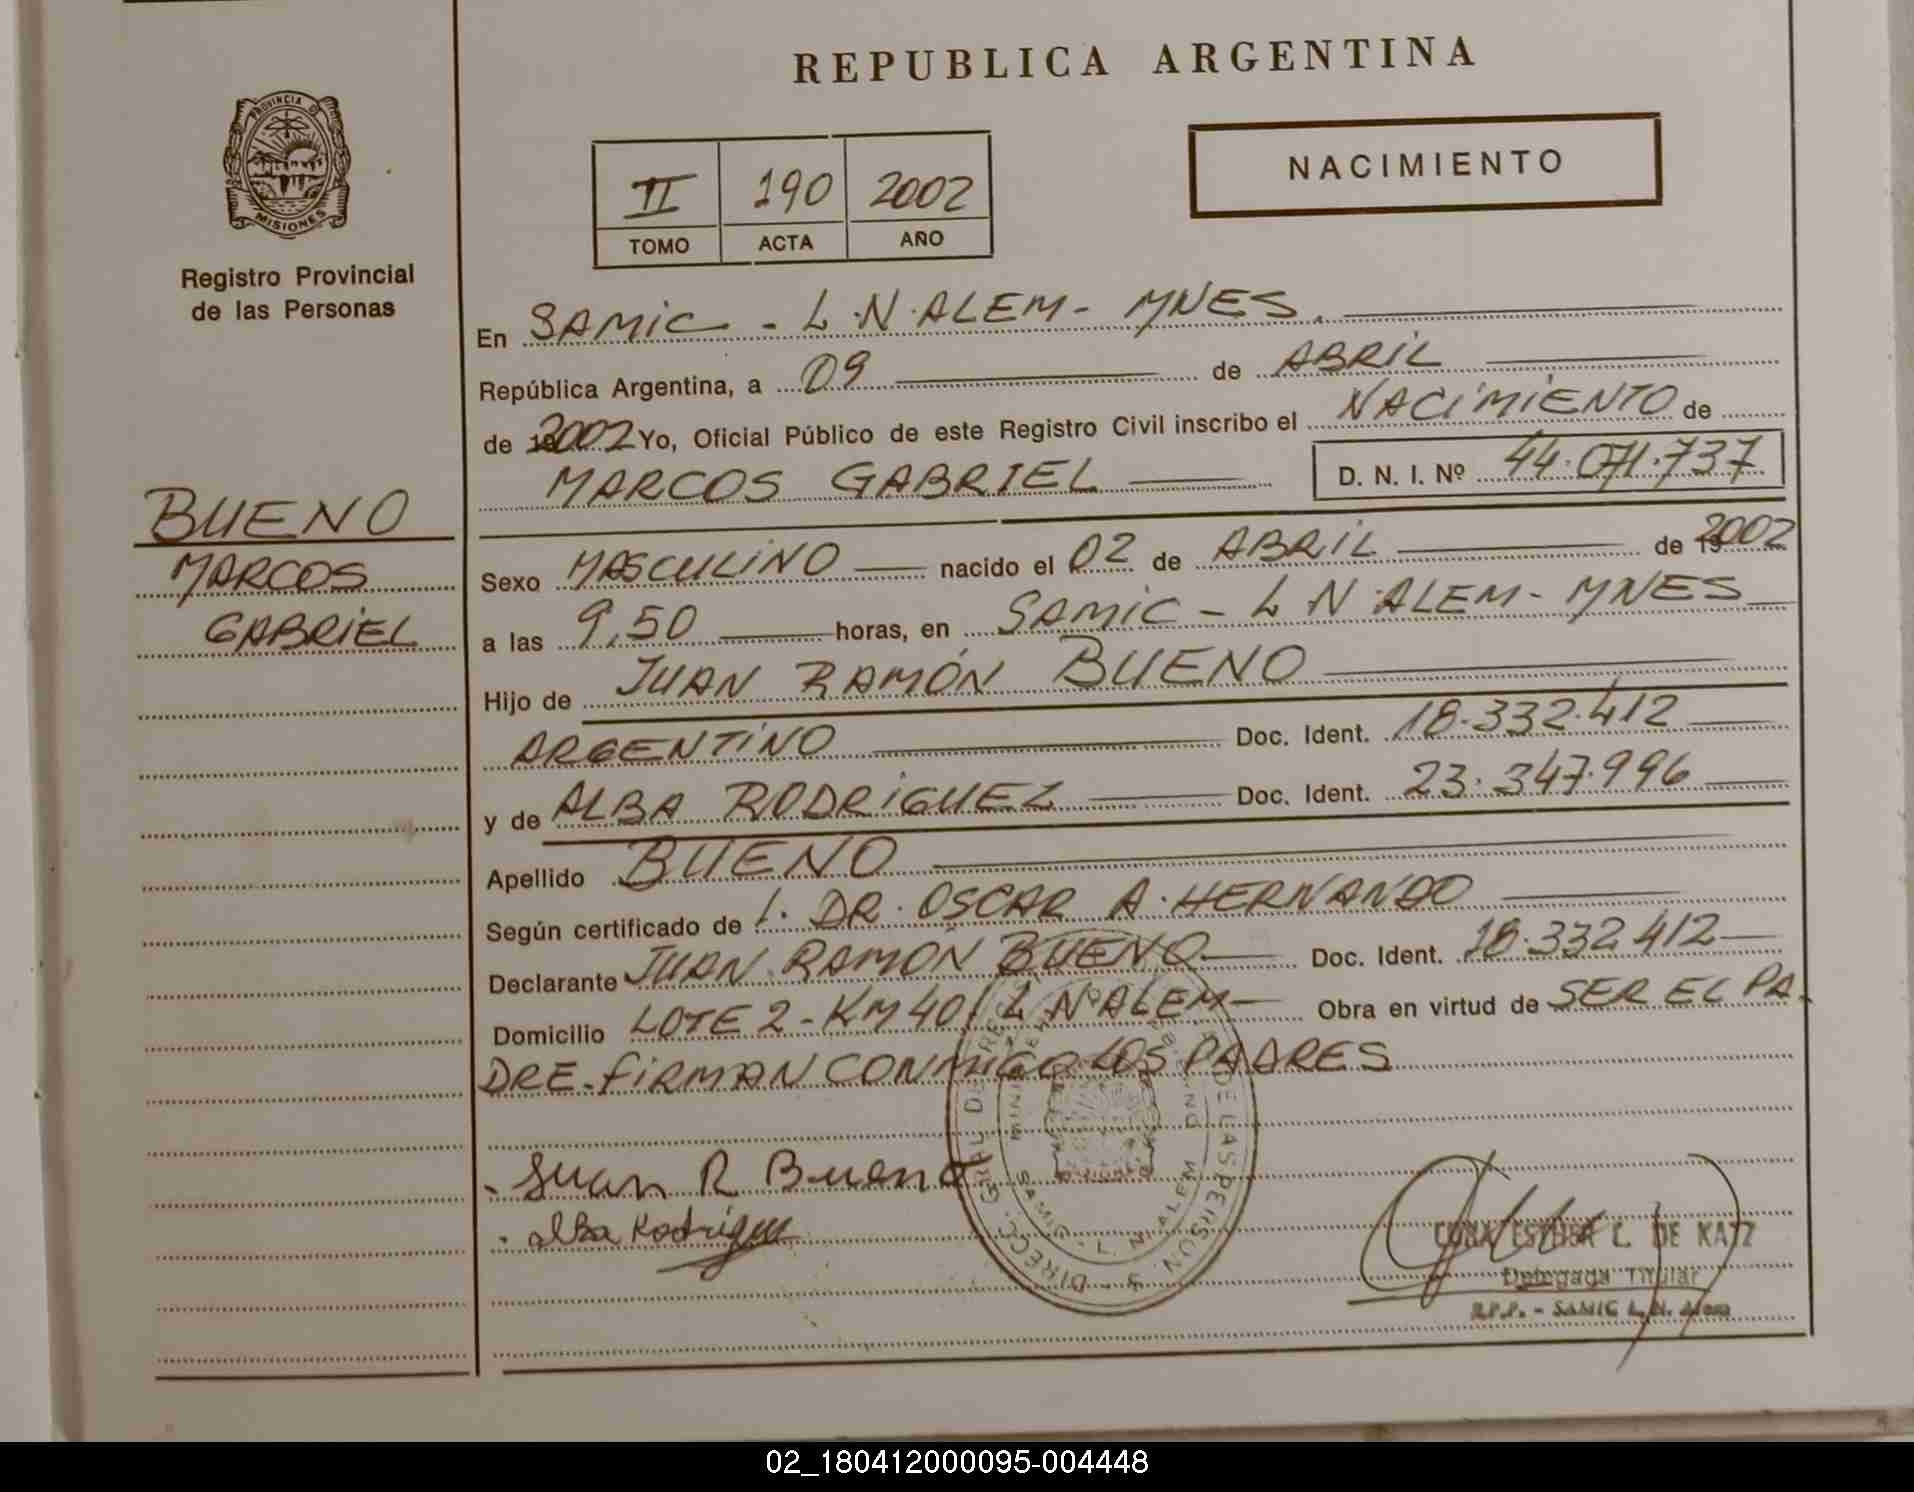 REPUBLICA ARGENTINA
PROVINCIA D
MISIONES
Registro Provincial
de las Personas
NACIMIENTO
II 190 2002
TOMO ACTA AÑO
En SAMIC - L.N.ALEM - MNES.
República Argentina, a 09 de ABRIL
de 2002 Yo, Oficial Público de este Registro Civil inscribo el NACIMIENTO de
MARCOS GABRIEL D. N. I. Nº 44.071.737
BUENO
MARCOS
GABRIEL
Sexo MASCULINO nacido el 02 de ABRIL de 2002
a las 9,50 horas, en SAMIC - L N ALEM - MNES
Hijo de JUAN RAMÓN BUENO
ARGENTINO Doc. Ident. 18.332.412
y de ALBA RODRIGUEZ Doc. Ident. 23.347.996
Apellido BUENO
Según certificado de 1. DR. OSCAR A. HERNANDO
Declarante JUAN RAMÓN BUENO Doc. Ident. 18.332.412
Domicilio LOTE 2 - KM 40 L N ALEM Obra en virtud de SER EL PA
DRE - FIRMAN CONMIGO LOS PADRES
Juan R Bueno
Alba Rodriguez
SAMIC - L. N. ALEM
ESTHER L. DE KATZ
Delegada Titular
R.P.P. - SAMIC L. N. Alem
02_180412000095-004448